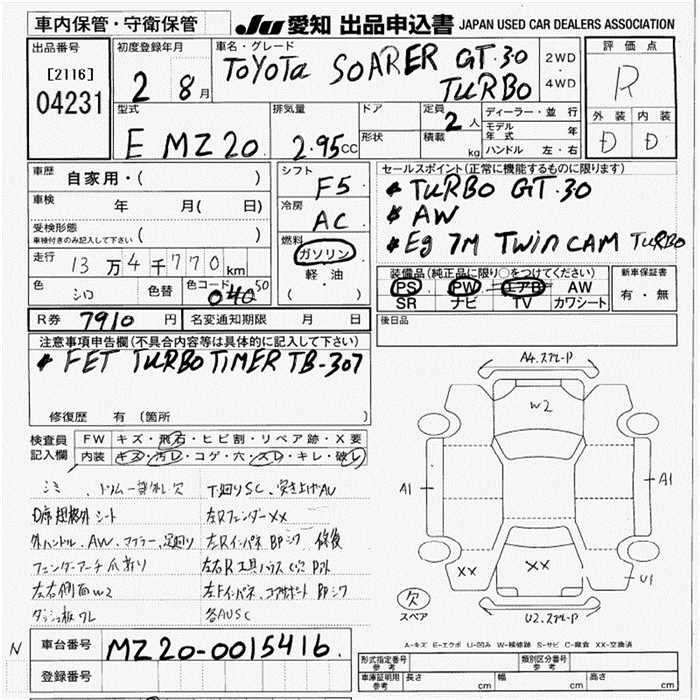 車内保管・守衛保管
JU 愛知 出品申込書 JAPAN USED CAR DEALERS ASSOCIATION
出品番号
[2116]
04231
初度登録年月
2 8月
車名・グレード
TOYOTA SOARER GT.30
TURBO
2WD
・
4WD
評価点
R
外装 内装
D D
型式
E MZ20
排気量
2.95cc
ドア
形状
定員
2人
積載
kg
ディーラー・並行
モデル年式 年
ハンドル 左・右
車歴
自家用・( )
車検
年 月( 日)
受検形態
車検付きのみ記入して下さい ( )
走行
13万4千770km
色
シロ
色替
色コード
040 50
シフト
F5
冷房
AC
燃料
ガソリン
・
軽油
( )
セールスポイント(正常に機能するものに限ります)
* TURBO GT.30
* AW
* Eg 7M TWIN CAM TURBO
装備品(純正品に限り○をつけてください)
PS PW エアB AW
SR ナビ TV カワシート
新車保証書
有・無
R券 7910 円
名変通知期限 月 日
後日品
注意事項申告欄(不具合内容等は具体的に記入して下さい)
* FET TURBO TIMER TB-307
修復歴 有(箇所
検査員
記入欄
FW キズ・飛石・ヒビ割・リペア跡・X要
内装 キズ・汚レ・コゲ・穴・スレ・キレ・破レ
シミ、トリム一部外レ欠
D席 シート
外ハンドル、AW、マフラー、足廻り
フェンダーアーチ爪折り
左右側面W2
ダッシュ板ワレ
下廻りSC、突き上げAU
左RフェンダーXX
左RインパネBPシワ 修後
左右R工具ハウス
左Fインパネ、コアサポートBPシワ
各AUSC
A4.スプレーP
W2
A1
A1
XX
XX
U1
U2.スプレーP
欠
スペア
A-キズ E-エクボ U-凹み W-補修跡 S-サビ C-腐食 XX-交換済
N
車台番号
MZ20-0015416.
登録番号
形式指定番号
参考
類別区分番号
参考
車庫証明用
参考
長さ cm
幅 cm
高さ cm